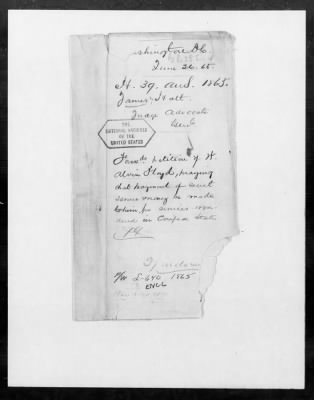 ashington D.C.
June 26. 65.
H. 39. A.G.S. 1865.
James Holt
Judge Advocate
Genl.
THE
NATIONAL ARCHIVES
OF THE
UNITED STATES
Forwds petition of W.
Alvin Lloyd, praying
that payment of secret
service money be made
to him for services ren-
dered in Confed States
1865
ENCL